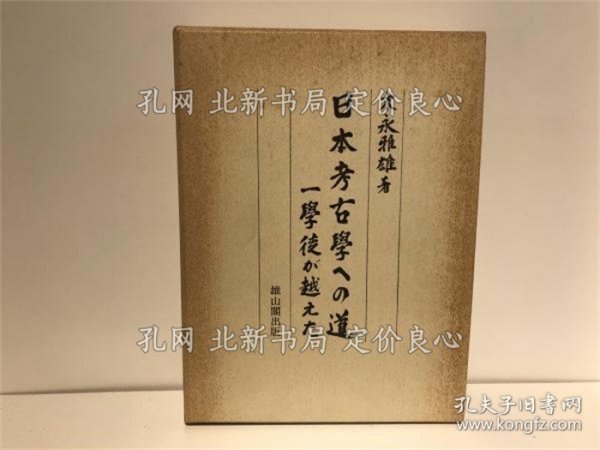 末永雅雄著
日本考古學への道
一學徒が越えた
雄山閣出版
孔网 北新书局 定价良心
孔网 北新书局 定价良心
孔夫子旧书网
www.kongfz.com